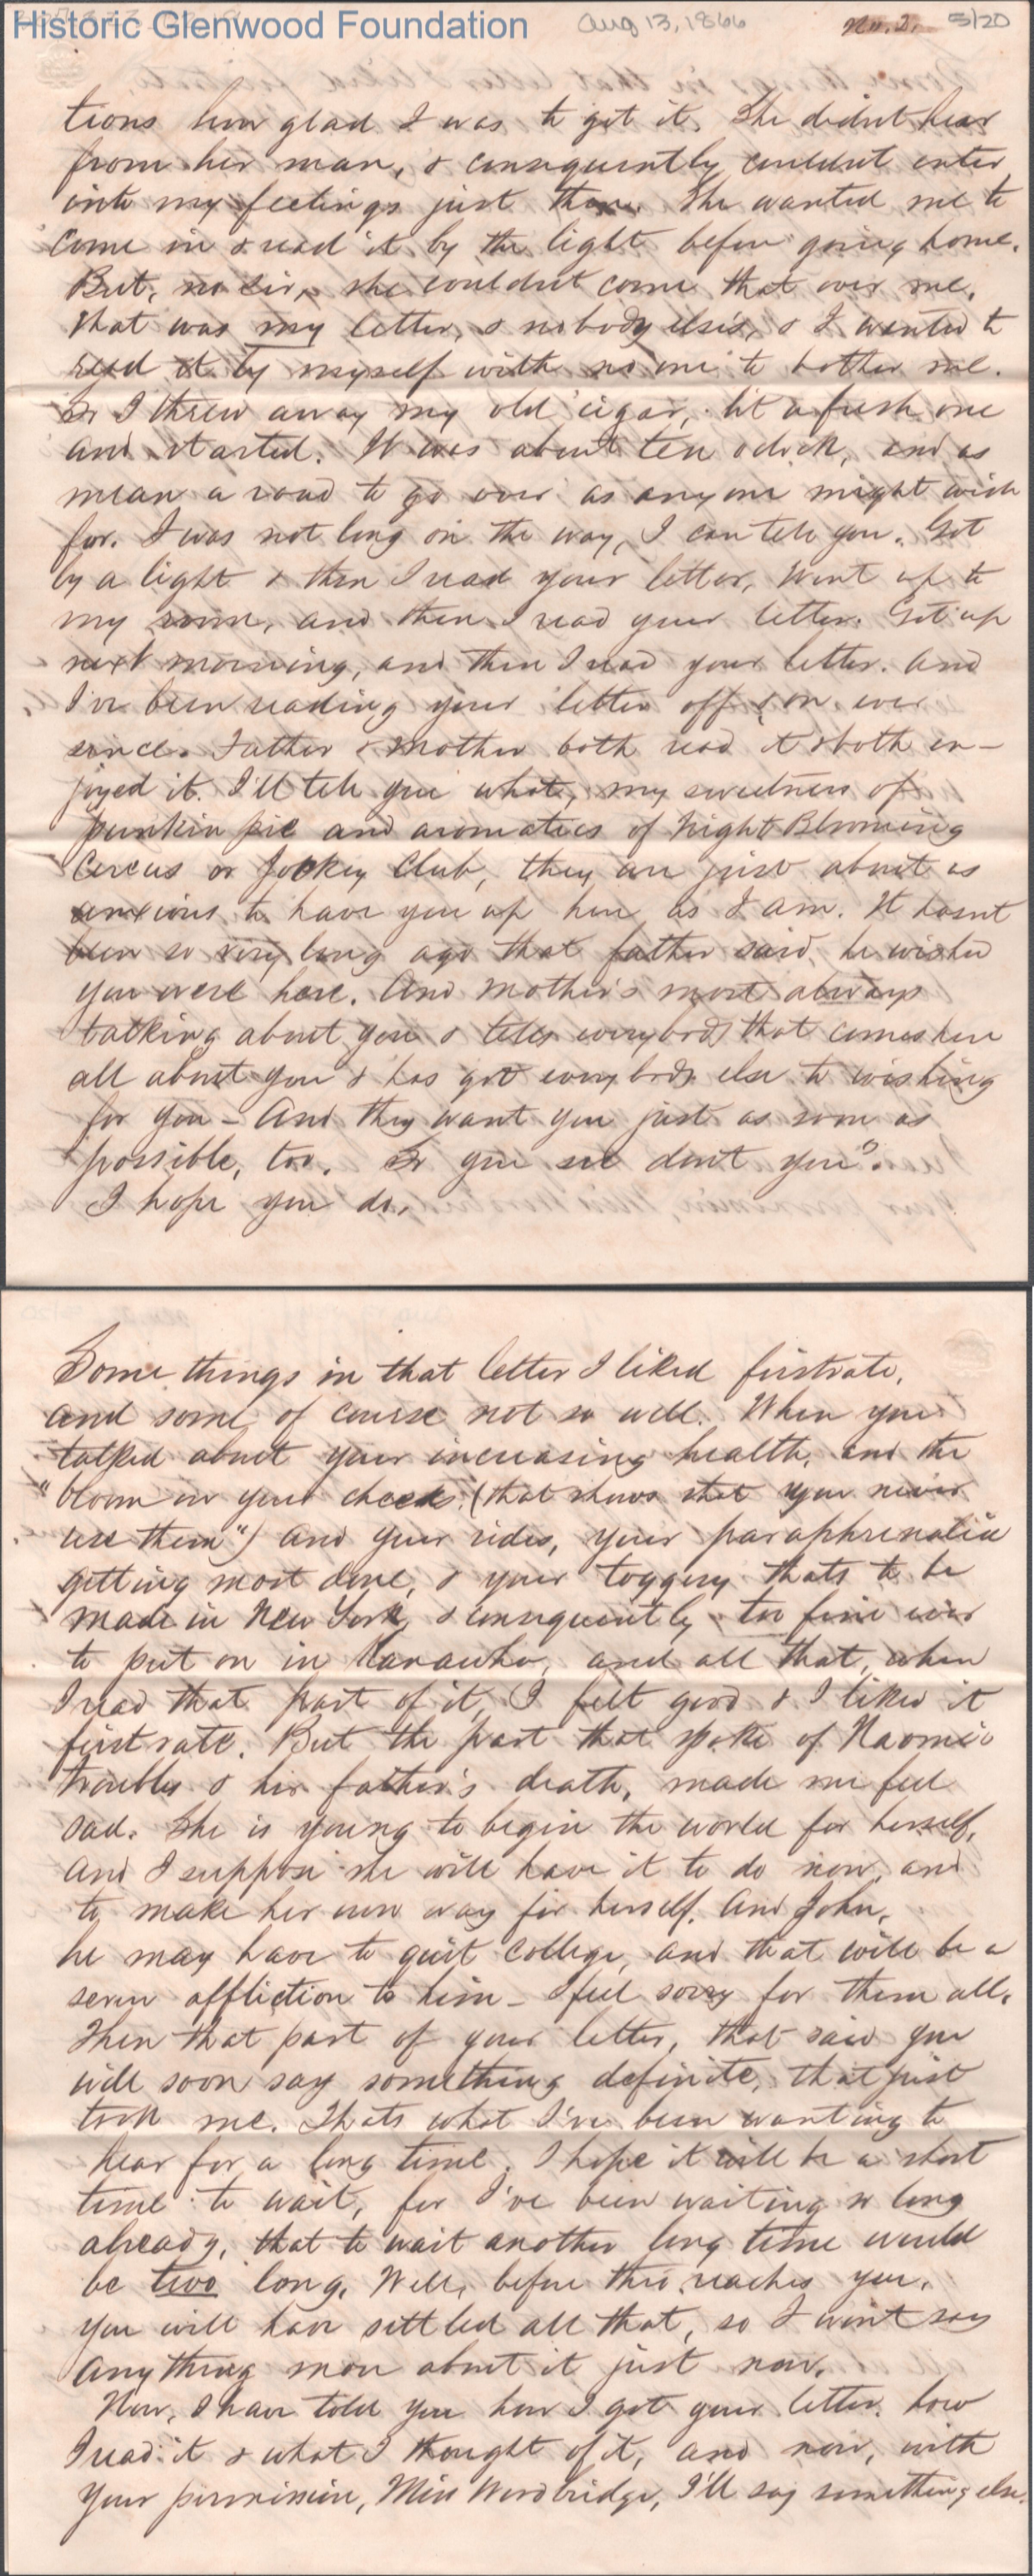 Historic Glenwood Foundation Aug 13, 1866 No. 2. 5/20
tions how glad I was to get it. She didnt hear
from her man, & consequently couldnt enter
into my feelings just then. She wanted me to
come in & read it by the light before going home.
But, no sir, she couldnt come that over me.
That was my letter, & nobody else's, & I wanted to
read it by myself with no one to bother me.
So I threw away my old cigar, lit a fresh one
and started. It was about ten oclock, and as
mean a road to go over as anyone might wish
for. I was not long on the way, I can tell you. Got
by a light & then I read your letter, Went up to
my room, and then I read your letter. Got up
next morning, and then I read your letter. And
I've been reading your letter off & on ever
since. Father & Mother both read it & both en-
joyed it. I'll tell you what, my sweetness of
punkin pie and aromatics of Night Blooming
Cereus or Jockey Club, they are just about as
anxious to have you up here as I am. It hasnt
been so very long ago that father said he wished
you were here. And Mother's most always
talking about you & tells everybody that comes here
all about you & has got everybody else to wishing
for you - And they want you just as soon as
possible, too. So you see dont you?
I hope you do.
Some things in that letter I liked firstrate,
and some of course not so well. When you
talked about your increasing health, and the
"bloom on your cheeks, (that shows that you never
use them") and your rides, your paraphrenalia
getting most done, & your toggery thats to be
made in New York, & consequently too fine ever
to put on in Kanawha, and all that, when
I read that part of it, I felt good & I liked it
first rate. But the part that spoke of Naomi's
troubles & her father's death, made me feel
sad. She is young to begin the world for herself,
and I suppose she will have it to do now, and
to make her own way for herself. And John,
he may have to quit college, and that will be a
severe affliction to him - I feel sorry for them all.
Then that part of your letter, that said you
will soon say something definite, that just
took me. Thats what I've been wanting to
hear for a long time. I hope it will be a short
time to wait, for I've been waiting so long
already, that to wait another long time would
be two long. Well, before this reaches you,
you will have settled all that, so I wont say
anything more about it just now.
Now, I have told you how I got your letter, how
I read it & what I thought of it, and now, with
your permission, Miss Woodbridge, I'll say something else.